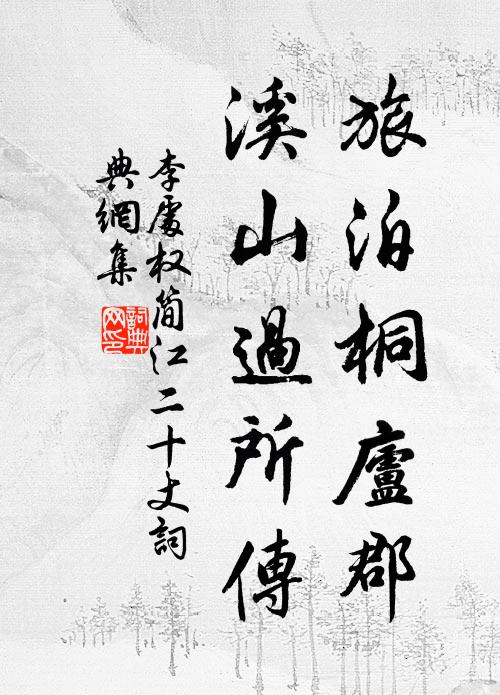 旅泊桐廬郡
溪山過所傳
李處权简江二十丈詞
典網集
詞典
网印